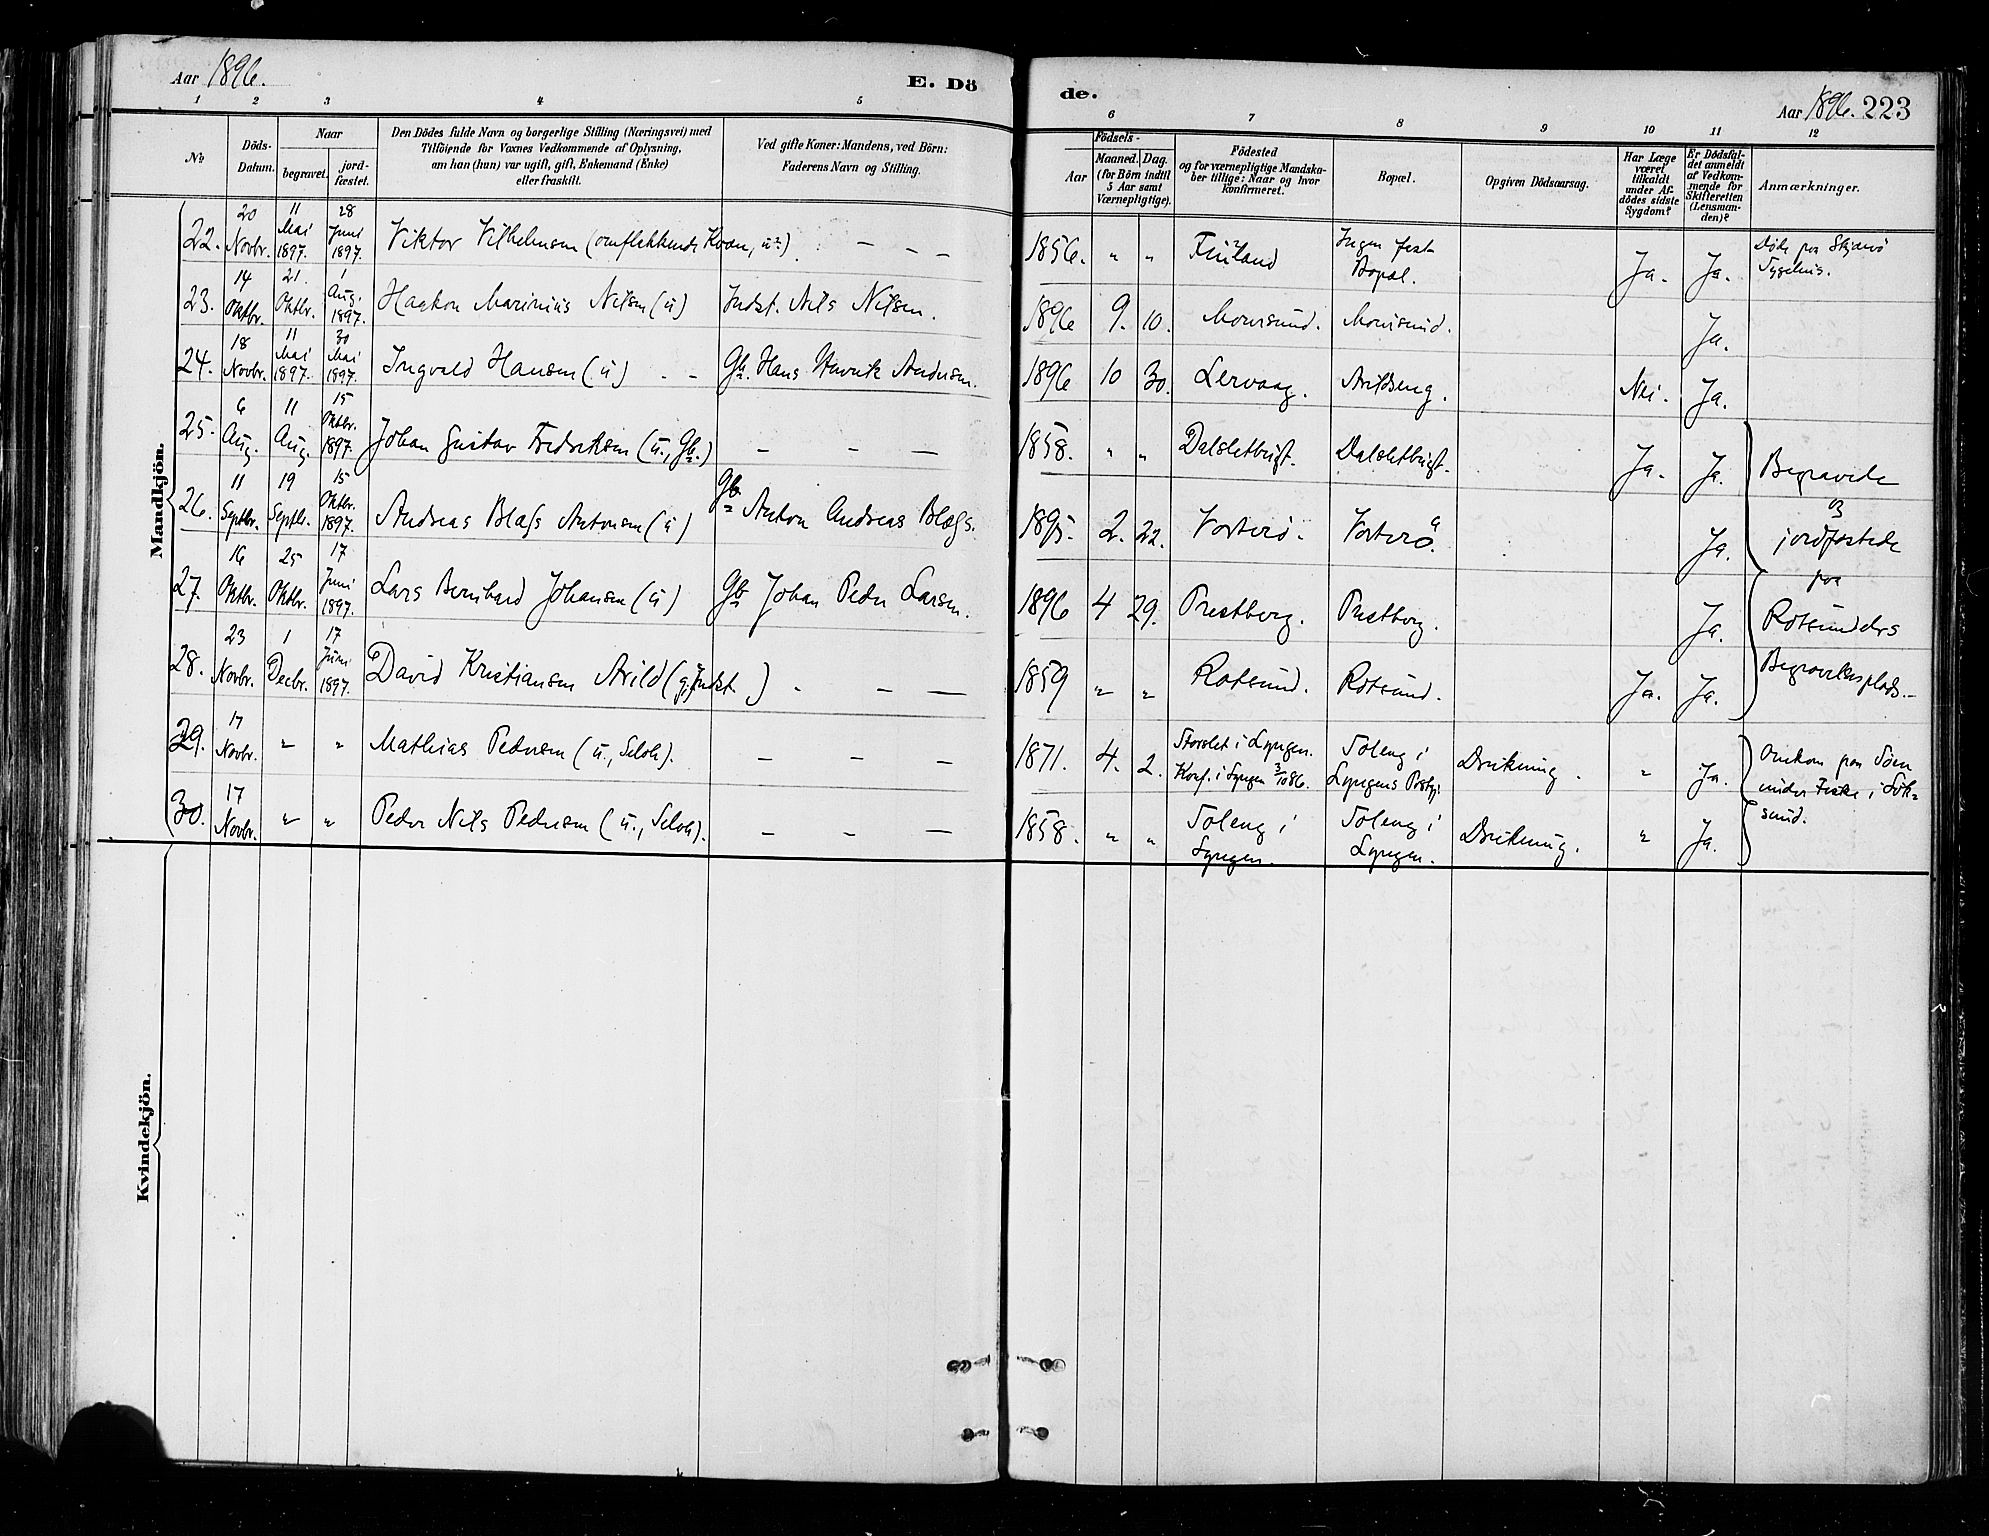 Aar 1896.
E. Dö
de.
Aar 1896. 223
1 2 3 4 5 6 7 8 9 10 11 12
No
Döds-
Datum.
Naar
begravet.
jord-
fæstet.
Den Dödes fulde Navn og borgerlige Stilling (Næringsvei) med
Tilföiende for Voxnes Vedkommende af Oplysning,
om han (hun) var ugift, gift, Enkemand (Enke)
eller fraskilt.
Ved gifte Koner: Mandens, ved Börn:
Faderens Navn og Stilling.
Födsels-
Aar
Maaned. Dag.
(for Börn indtil
5 Aar samt
Værnepligtige).
Födested
og for værnepligtige Mandska-
ber tillige: Naar og hvor
konfirmeret.
Bopæl.
Opgiven Dödsaarsag.
Har Læge
været
tilkaldt
under Af-
dödes sidste
Sygdom?
Er Dödsfal-
det anmeldt
af Vedkom-
mende for
Skifteretten
(Lensman-
den)?
Anmærkninger.
Mandkjön.
22. 20 Novbr. 11 Mai 1897. 28 Juni 1897. Viktor Vilhelmsen (omflakkende Kvæn, u.) — — 1856. " " Finland Ingen fast Bopæl. Ja. Ja. Døde paa Skjærvø Sygehus.
23. 14 Oktbr. 21. Oktbr. 1 Aug. 1897. Haakon Marinius Nilsen (u) Indst. Nils Nilsen. 1896 9. 10. Mourisund. Mourisund. Ja.
24. 18 Novbr. 11 Mai 1897. 30 Mai 1897. Ingvald Hansen (u) - - Gb. Hans Henrik Andersen. 1896 10 30. Lervaag. Arildseng. Nei. Ja.
25. 6 Aug. 11 Aug. 15 Oktbr. 1897. Johan Gustav Fredriksen (u., Gb.) — — — 1858. " " Dalsletbugt. Dalsletbugt. Ja. Ja.
26. 11 Septbr. 19 Septbr. 15 Oktbr. 1897. Andreas Blæss Antonsen (u) Gb. Anton Andreas Blæss. 1895. 2. 22. Vorterø. Vorterø. Ja.
27. 16 Oktbr. 25 Oktbr. 17 Juni 1897. Lars Bernhard Johansen (u) Gb Johan Peder Larsen. 1896 4 29. Prestberg. Prestberg. Ja.
28. 23 Novbr. 1 Decbr. 17 Juni 1897. David Kristiansen Arild (g, Indst.) - — — 1859 " " Rotsund. Rotsund. Ja. Ja.
Begravede
og
jordfæstede
paa
Rotsundets
Begravelsesplads.-
29. 17 Novbr. " " Mathias Pedersen (u., Selvh). — — — 1871. 4. 2. Storslet i Lyngen. Konf. i Lyngen 3/10 86. Soleng i Lyngens Prstgj. Drukning. " Ja.
30. 17 Novbr. " " Peder Nils Pedersen (u., Selvh). — — — 1858. " " Soleng i Lyngen. Soleng i Lyngen. Drukning. " Ja.
Omkom paa Søen
under Fiske i
sund.
Kvindekjön.